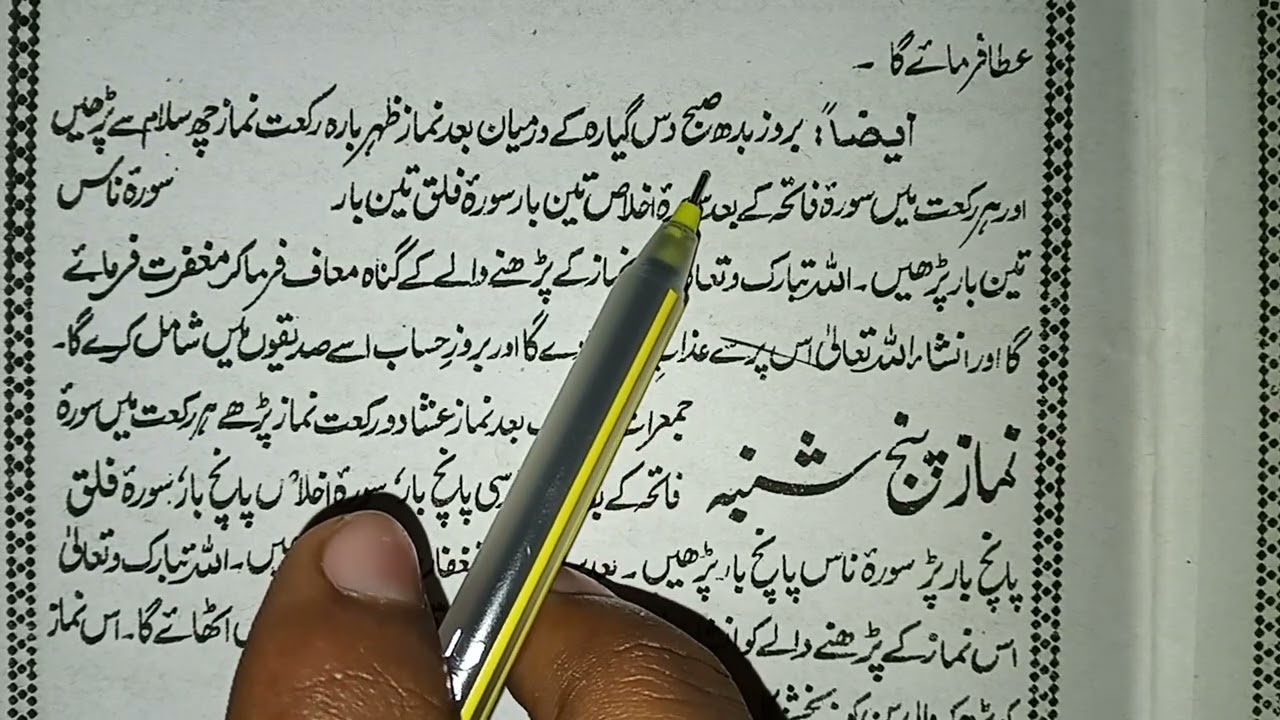 عطا فرمائے گا ۔
ایضاً: بروز بدھ صبح دس گیارہ کے درمیان بعد نماز ظہر بارہ رکعت نماز چھ سلام سے پڑھیں
اور ہر رکعت میں سورۂ فاتحہ کے بعد سورۂ اخلاص تین بار سورۂ فلق تین بار سورۂ ناس
تین بار پڑھیں ۔ اللہ تبارک و تعالیٰ نماز کے پڑھنے والے کے گناہ معاف فرما کر مغفرت فرمائے
گا اور انشاء اللہ تعالیٰ اس پر سے عذاب دے گا اور بروزِ حساب اسے صدیقوں میں شامل کرے گا۔
نماز پنج شنبہ
جمعرات بعد نماز عشاء دو رکعت نماز پڑھے ہر رکعت میں سورۂ
فاتحہ کے پانچ بار، سورۂ اخلاص پانچ بار، سورۂ فلق
پانچ بار پڑ سورۂ ناس پانچ بار پڑھیں ۔ اللہ تبارک و تعالیٰ
اس نماز کے پڑھنے والے کو اٹھائے گا۔ اس نماز